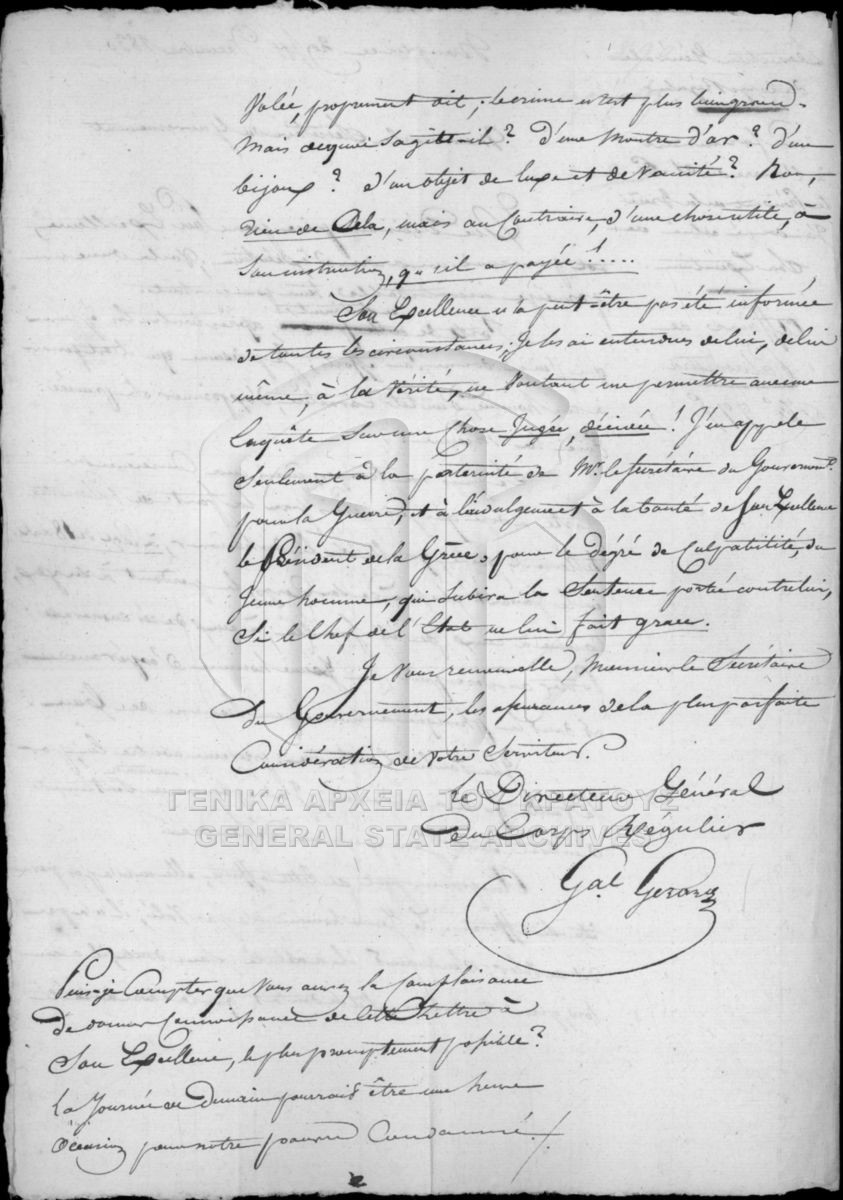 Volée, proprement dit; le crime n'est plus bien grand.
Mais de quoi s'agit-il? D'une Montre d'or? D'un
bijoux? D'un objet de luxe et de Vanité? Non,
rien de Cela, mais au Contraire, d'une chose utile, à
Son instruction, qu'il a payée!....
Son Excellence n'a peut-être pas été informée
de toutes les circonstances; Je les ai entendues de lui, de lui
même, à la Vérité, ne Voulant me permettre aucune
Enquête Sur une Chose Jugée, décidée! J'en appele
Seulement à la paternité de Mr. le Secrétaire du Gouvernemt.
pour la Guerre, et à l'indulgence et à la bonté de Son Excellence
le Président de la Grèce, pour le dégré de Culpabilité, du
Jeune homme, qui Subira la Sentence portée contre lui,
Si le Chef de l'Etat ne lui fait grace.
Je Vous renouvelle, Monsieur le Secrétaire
du Gouvernement, les assurances de la plus parfaite
Considération de Votre Serviteur.
le Directeur Général
du Corps Régulier
Gal. Gerard
ΓΕΝΙΚΑ ΑΡΧΕΙΑ ΤΟΥ ΚΡΑΤΟΥΣ
GENERAL STATE ARCHIVES
Puis-je Compter que Vous aurez la Complaisance
De donner Connoissance de cette Lettre à
Son Excellence, le plus promptement possible?
la Journée de Demain pourrait être une heureuse
Occasion pour notre pauvre Condamné./.